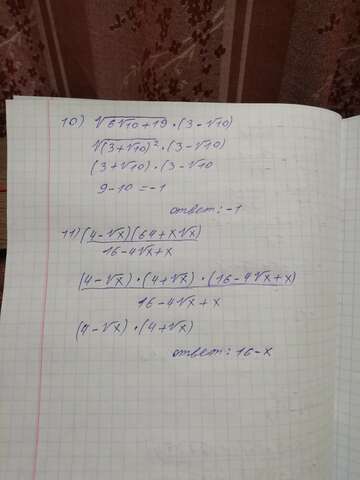 10) √(6√10+19)·(3-√10)
√(3+√10)²·(3-√10)
(3+√10)·(3-√10
9-10=-1
ответ:-1
11) (4-√x)(64+x√x)
16-4√x+x
(4-√x)·(4+√x)·(16-4√x+x)
16-4√x+x
(4-√x)·(4+√x)
ответ: 16-x